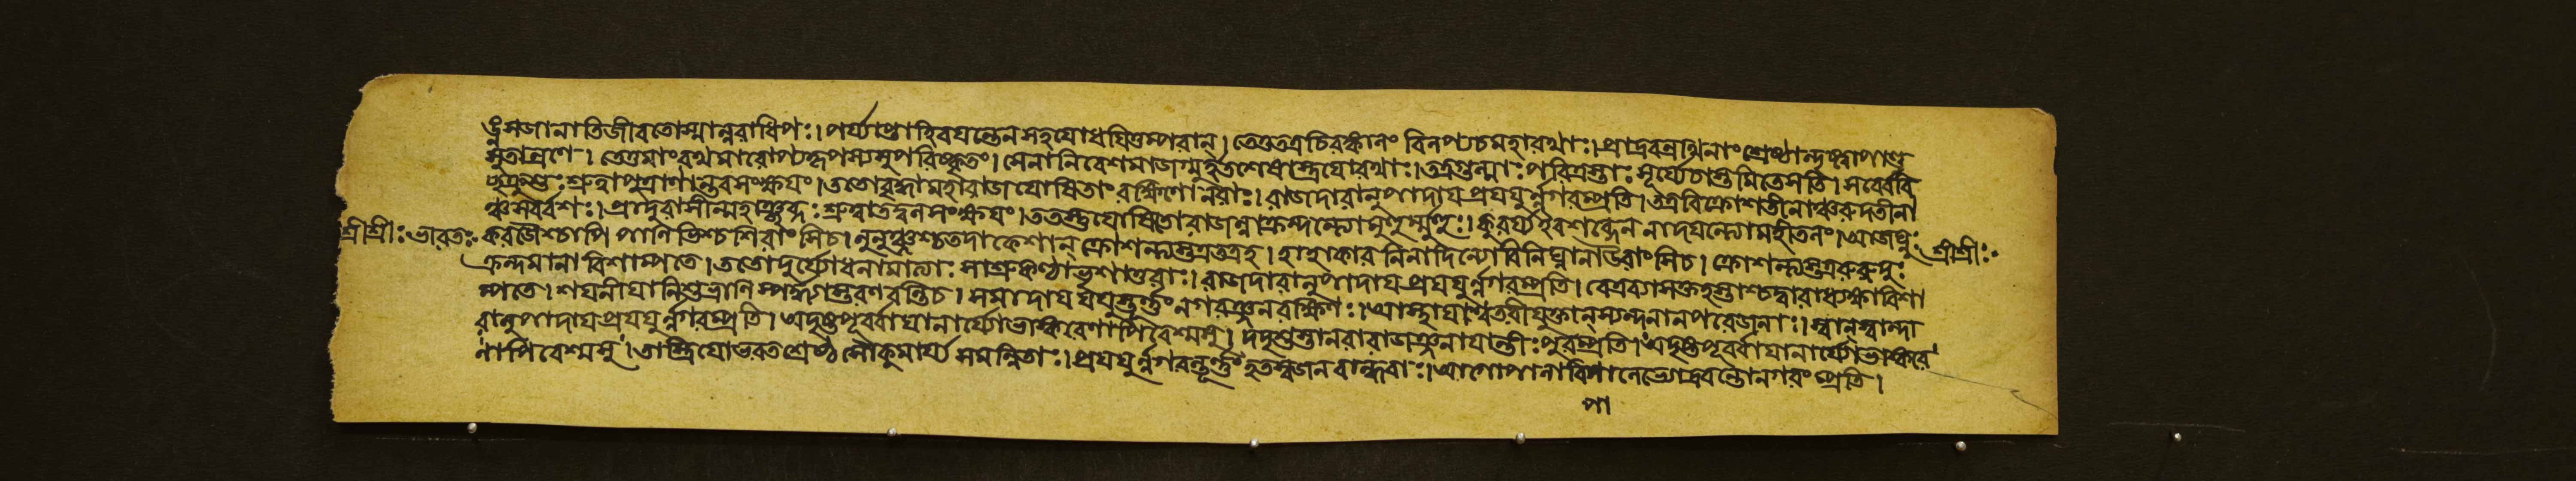 ন্নু নজানাতিজীবতোস্মান্নরাধিপঃ। পর্য্যাপ্তোহিবযন্তেনসহযোধযিতুম্পরান্। তেতুতত্রচিরন্ধ্যানং বিলপ্যচমহারথাঃ। প্রাদ্রবন্রথিনাংশ্রেষ্ঠান্দৃষ্ট্বাপাণ্ডু
সুতান্রণে। তেতুমাংরথমারোপ্যকৃপস্যসুপরিষ্কৃতং। সেনানিবেশমাজগ্মুর্হতশেষাস্ত্রযোরথাঃ। তত্রগুল্মাঃ পরিত্রস্তাঃ সূর্য্যেচাস্তমিতেসতি। সর্ব্বেবি
চুক্রুশুঃশ্রুত্বাপুত্রাণান্তবসংক্ষযং। ততোবৃদ্ধামহারাজযোষিতাংরক্ষিণোনরাঃ। রাজদারানুপাদাযপ্রযযুর্ন্নগরম্প্রতি। তত্রবিক্রোশতীনাঞ্চরুদতীনা
ঞ্চসর্ব্বশঃ। প্রাদুরাসীন্মহাঞ্ছব্দঃশ্রুত্বাতদ্বলসংক্ষযং। ততস্তুযোষিতোরাজন্নাক্রন্দন্ত্যোমুহুর্ম্মুহুঃ। কুরর্য্যইবশব্দেন নাদযন্ত্যোমহীতলং। আজঘ্নুঃ
শ্রীশ্রীঃ ভারতঃ করজৈশ্চাপি পাণিভিশ্চশিরাংসিচ। লুলুঞ্চুশ্চতদাকেশান্ ক্রোশন্ত্যস্তত্রতত্রহ। হাহাকার নিনাদিন্যোবিনিঘ্নানাউরাংসিচ। ক্রোশন্ত্যস্তত্ররুরুদুঃ শ্রীশ্রীঃ
ক্রন্দমানাবিশাম্পতে। ততোদুর্য্যোধনামাত্যাঃ সাশ্রুকণ্ঠাভৃশাতুরাঃ। রাজদারানুপাদাযপ্রযযুর্ন্নগরম্প্রতি। বেত্রব্যাসক্তহস্তাশ্চদ্বারাধ্যক্ষাবিশা
ম্পতে। শযনীযানিশুভ্রাণি স্পর্দ্ধ্যাস্তরণবন্তিচ। সমাদায যযুস্তূর্ণ্ণংনগরঞ্জনরক্ষিণঃ। আস্থাযাশ্বতরীযুক্তান্স্যন্দনানপরেজনাঃ। স্বান্স্বান্দা
রানুপাদাযপ্রযযুর্ন্নগরম্প্রতি। অদৃষ্টপূর্ব্বাযানার্য্যোভাস্করেণাপিবেশ্মসু। দদৃশুস্তানরারাজঞ্জনাযান্তীঃপুরম্প্রতি। অদৃষ্টপূর্ব্বাযানার্য্যোভাস্করে
ণাপিবেশ্মসু। তাস্ত্রিযোভরতশ্রেষ্ঠ সৌকুমার্য্য সমন্বিতাঃ। প্রযযুর্ন্নগরন্তূর্ণ্ণংহতস্বজনবান্ধবাঃ। আগোপালাবিপালেভ্যোদ্রবন্তোনগরংম্প্রতি।
পা